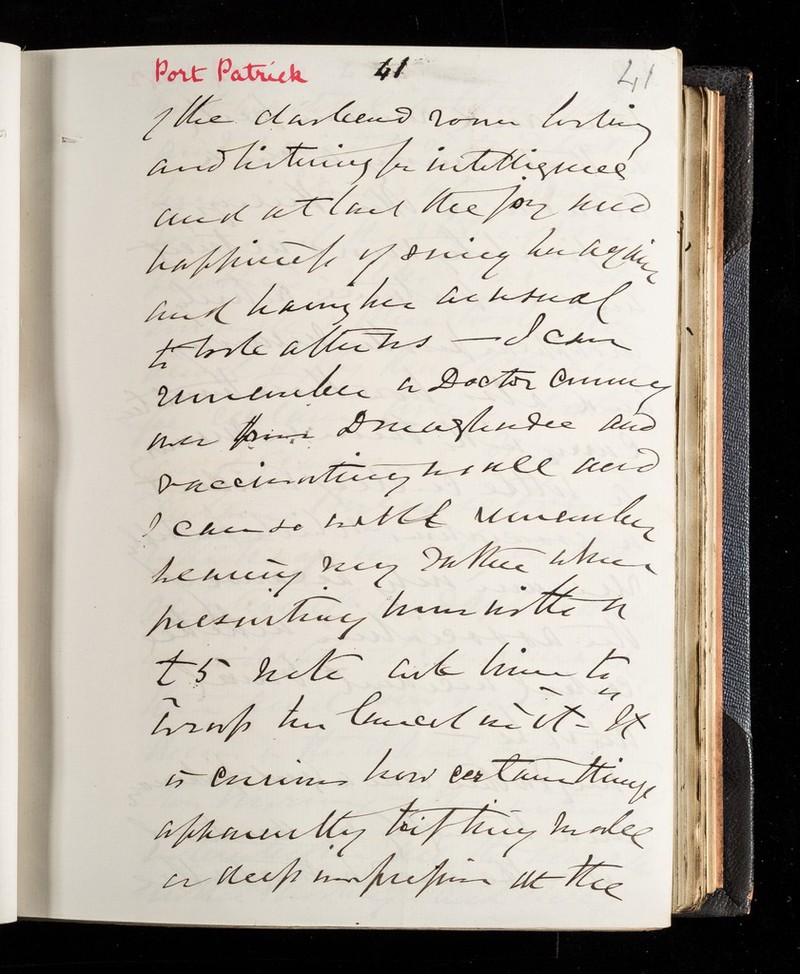 Port Patrick 41 41
of the darkened room looking
and listening for intelligence
and at last the joy and
happiness of seeing her again
and having her as usual
to look after us — I can
remember a Doctor coming
over from Donaghadee and
vaccinating us all and
I can so well remember
hearing my Father when
presenting him with a
£5 note ask him to
"wrap the lancet in it" - It
is curious how certain things
apparently trifling make
a deep impression at the